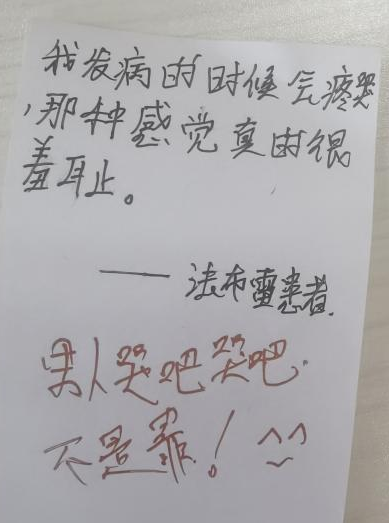 我发病的时候会疼哭
，那种感觉真的很
羞耻。
—— 法布雷患者.
男人哭吧哭吧.
不是罪！^^